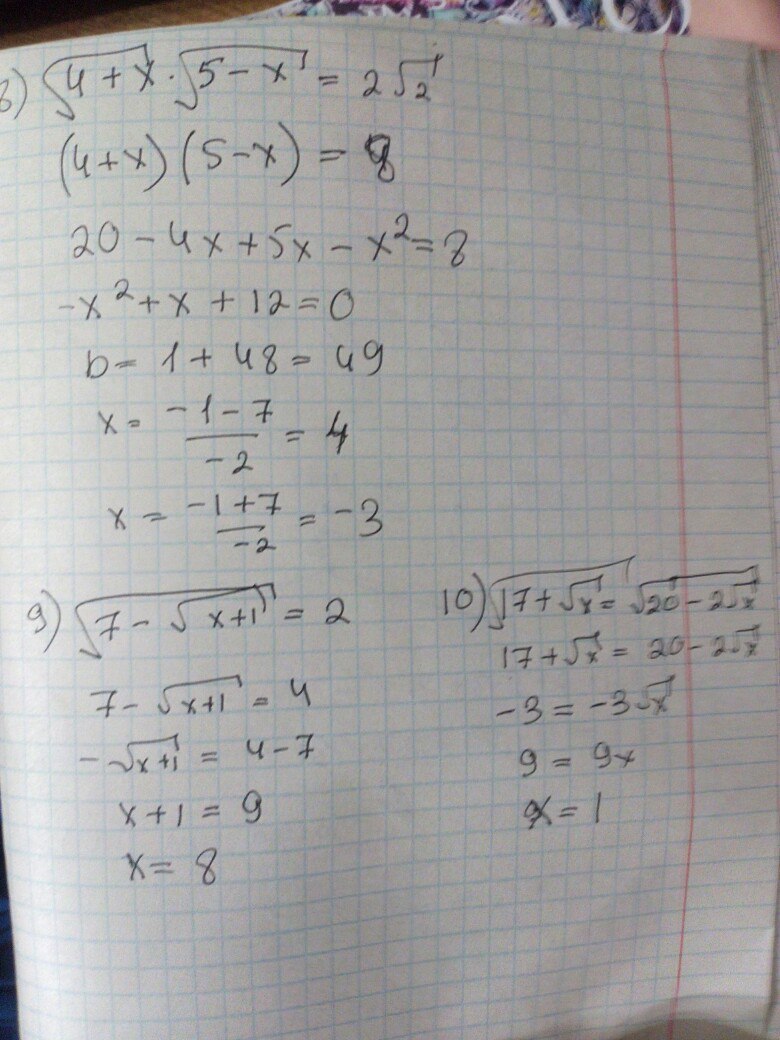 8) √(4+x) · √(5-x) = 2√2
(4+x)(5-x) = 8
20 - 4x + 5x - x² = 8
-x² + x + 12 = 0
D = 1 + 48 = 49
x = (-1-7)/(-2) = 4
x = (-1+7)/(-2) = -3
9) √(7 - √(x+1)) = 2
7 - √(x+1) = 4
-√(x+1) = 4-7
x+1 = 9
x = 8
10) √(17+√x) = √(20-2√x)
17+√x = 20-2√x
-3 = -3√x
9 = 9x
x = 1